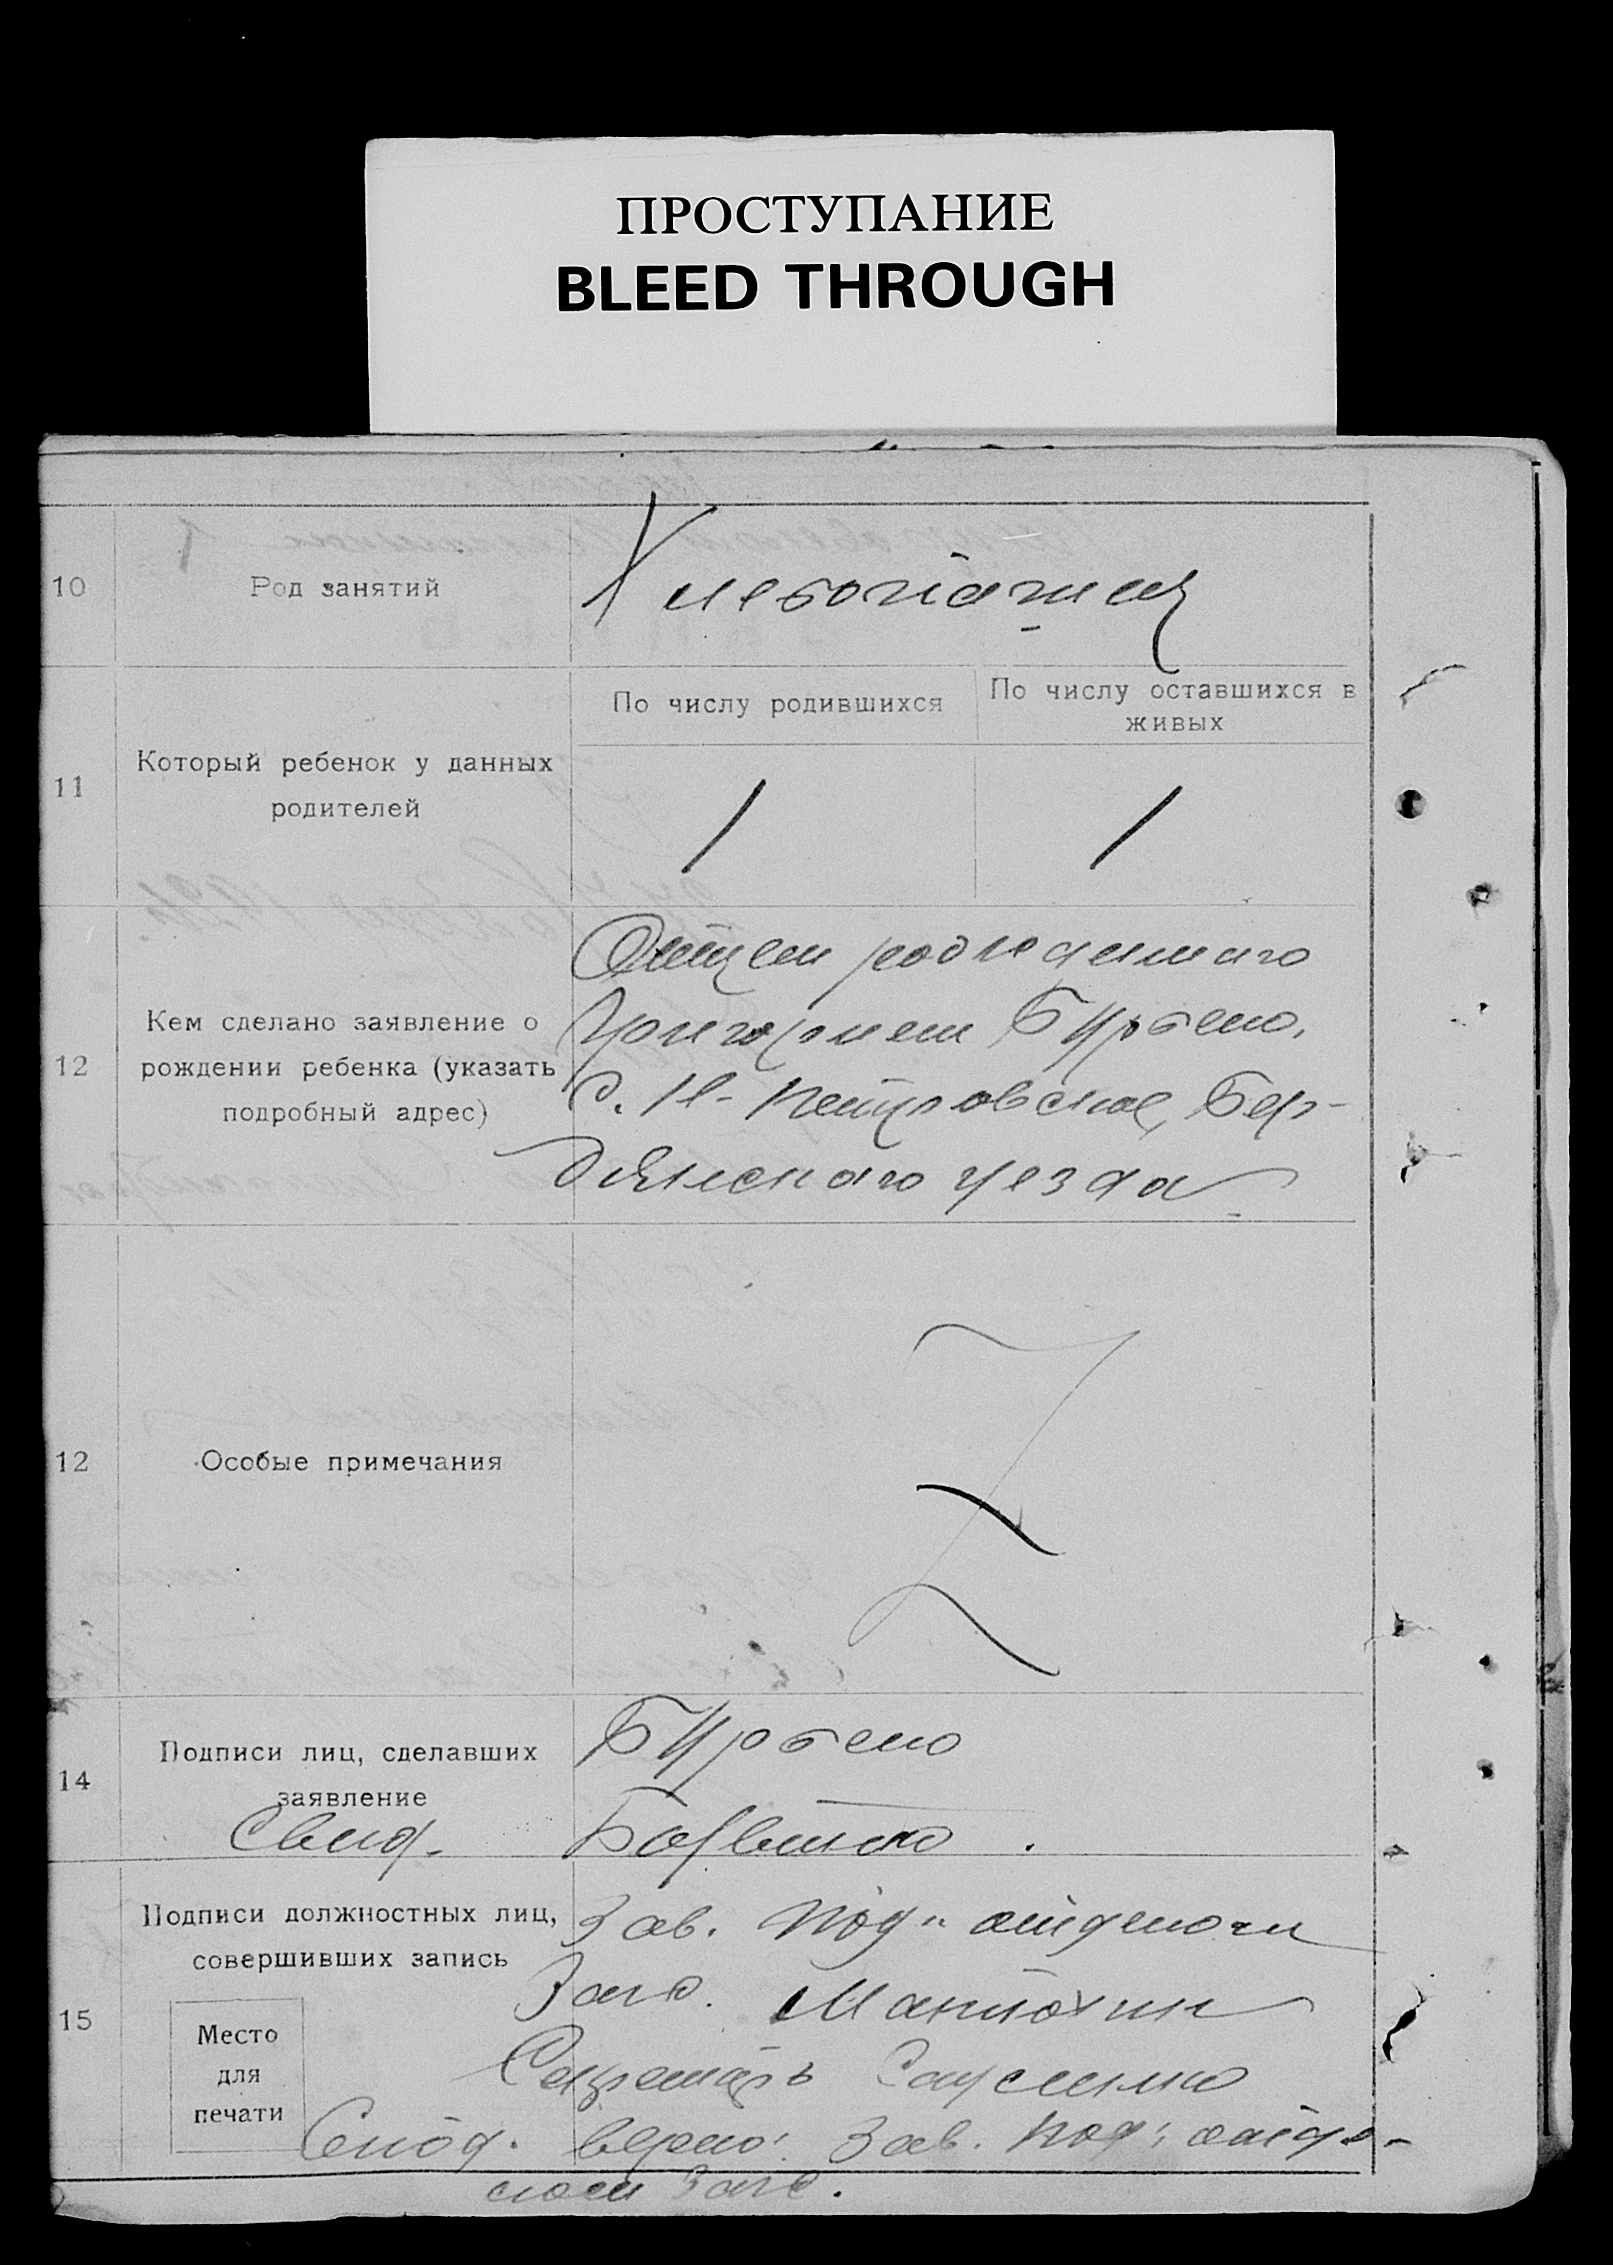 ПРОСТУПАНИЕ
BLEED THROUGH
10
Род занятий
Хлебопашец
11
Который ребенок у данных
родителей
По числу родившихся
По числу оставшихся в
живых
1
1
12
Кем сделано заявление о
рождении ребенка (указать
подробный адрес)
Отцем
Григорием
с. Н-Петровское, Бер-
дянского уезда
12
Особые примечания
Z
14
Подписи лиц, сделавших
заявление
Свид.
15
Подписи должностных лиц,
совершивших запись
Место
для
печати
Зав. Под'отделом
Загс.
Секретарь
верно: Зав. Под'отде-
лом Загс.